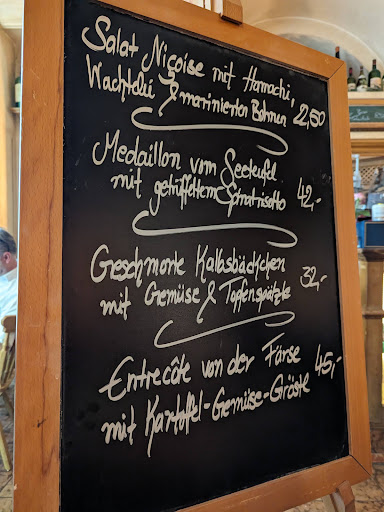 Salat Niçoise mit Hamachi,
Wachtelei & marinierten Bohnen 22,50
Medaillon vom Seeteufel
mit getrüffeltem Spinatrisotto 42,-
Geschmorte Kalbsbäckchen
mit Gemüse & Topfenspätzle 32,-
Entrecôte von der Färse 45,-
mit Kartoffel-Gemüse-Gröstl